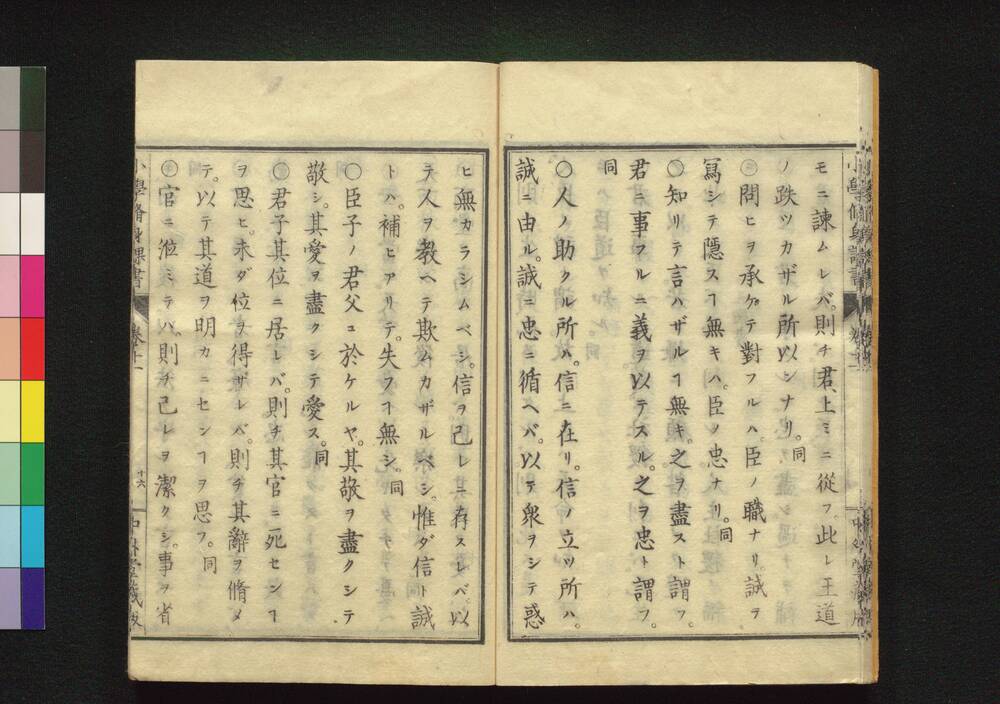 モニ諫ムレバ。則チ君、上ミニ從フ。此レ王道
ノ跌ツカザル所以ンナリ。同
○問ヒヲ承ケテ對フルハ。臣ノ職ナリ。誠テ
寫シテ隱スヿ無キハ。臣ノ忠ナリ。同
○知リテ言ハザルヿ無キ。之ヲ盡スト謂フ。
君ニ事フルニ義ヲ以テスル。之ヲ忠ト謂フ。
同
○人ノ助クル所ハ。信ニ在リ。信ノ立ツ所ハ。
誠ニ由ル。誠ニ忠ニ循ヘバ。以テ衆ヲシテ惑
ヒ無カラシムベシ。信ヲ己レニ存スレバ。以
テ人ヲ教ヘテ欺ムカザルベシ。惟ダ信ト誠
トハ。補ヒアリテ。失フヿ無シ。同
○臣子ノ君父ニ於ケルヤ。其敬ヲ盡クシテ
敬シ。其愛ヲ盡クシテ愛ス。同
○君子其位ニ居レバ。則チ其官ニ死センヿ
ヲ思ヒ。未ダ位ヲ得ザレバ。則チ其辭ヲ脩メ
テ。以テ其道ヲ明カニセンヿヲ思フ。同
○官ニ涖ミテハ。則チ己レヲ潔クシ。事ヲ省
小學脩身課書 卷十一 十六 中外堂藏版